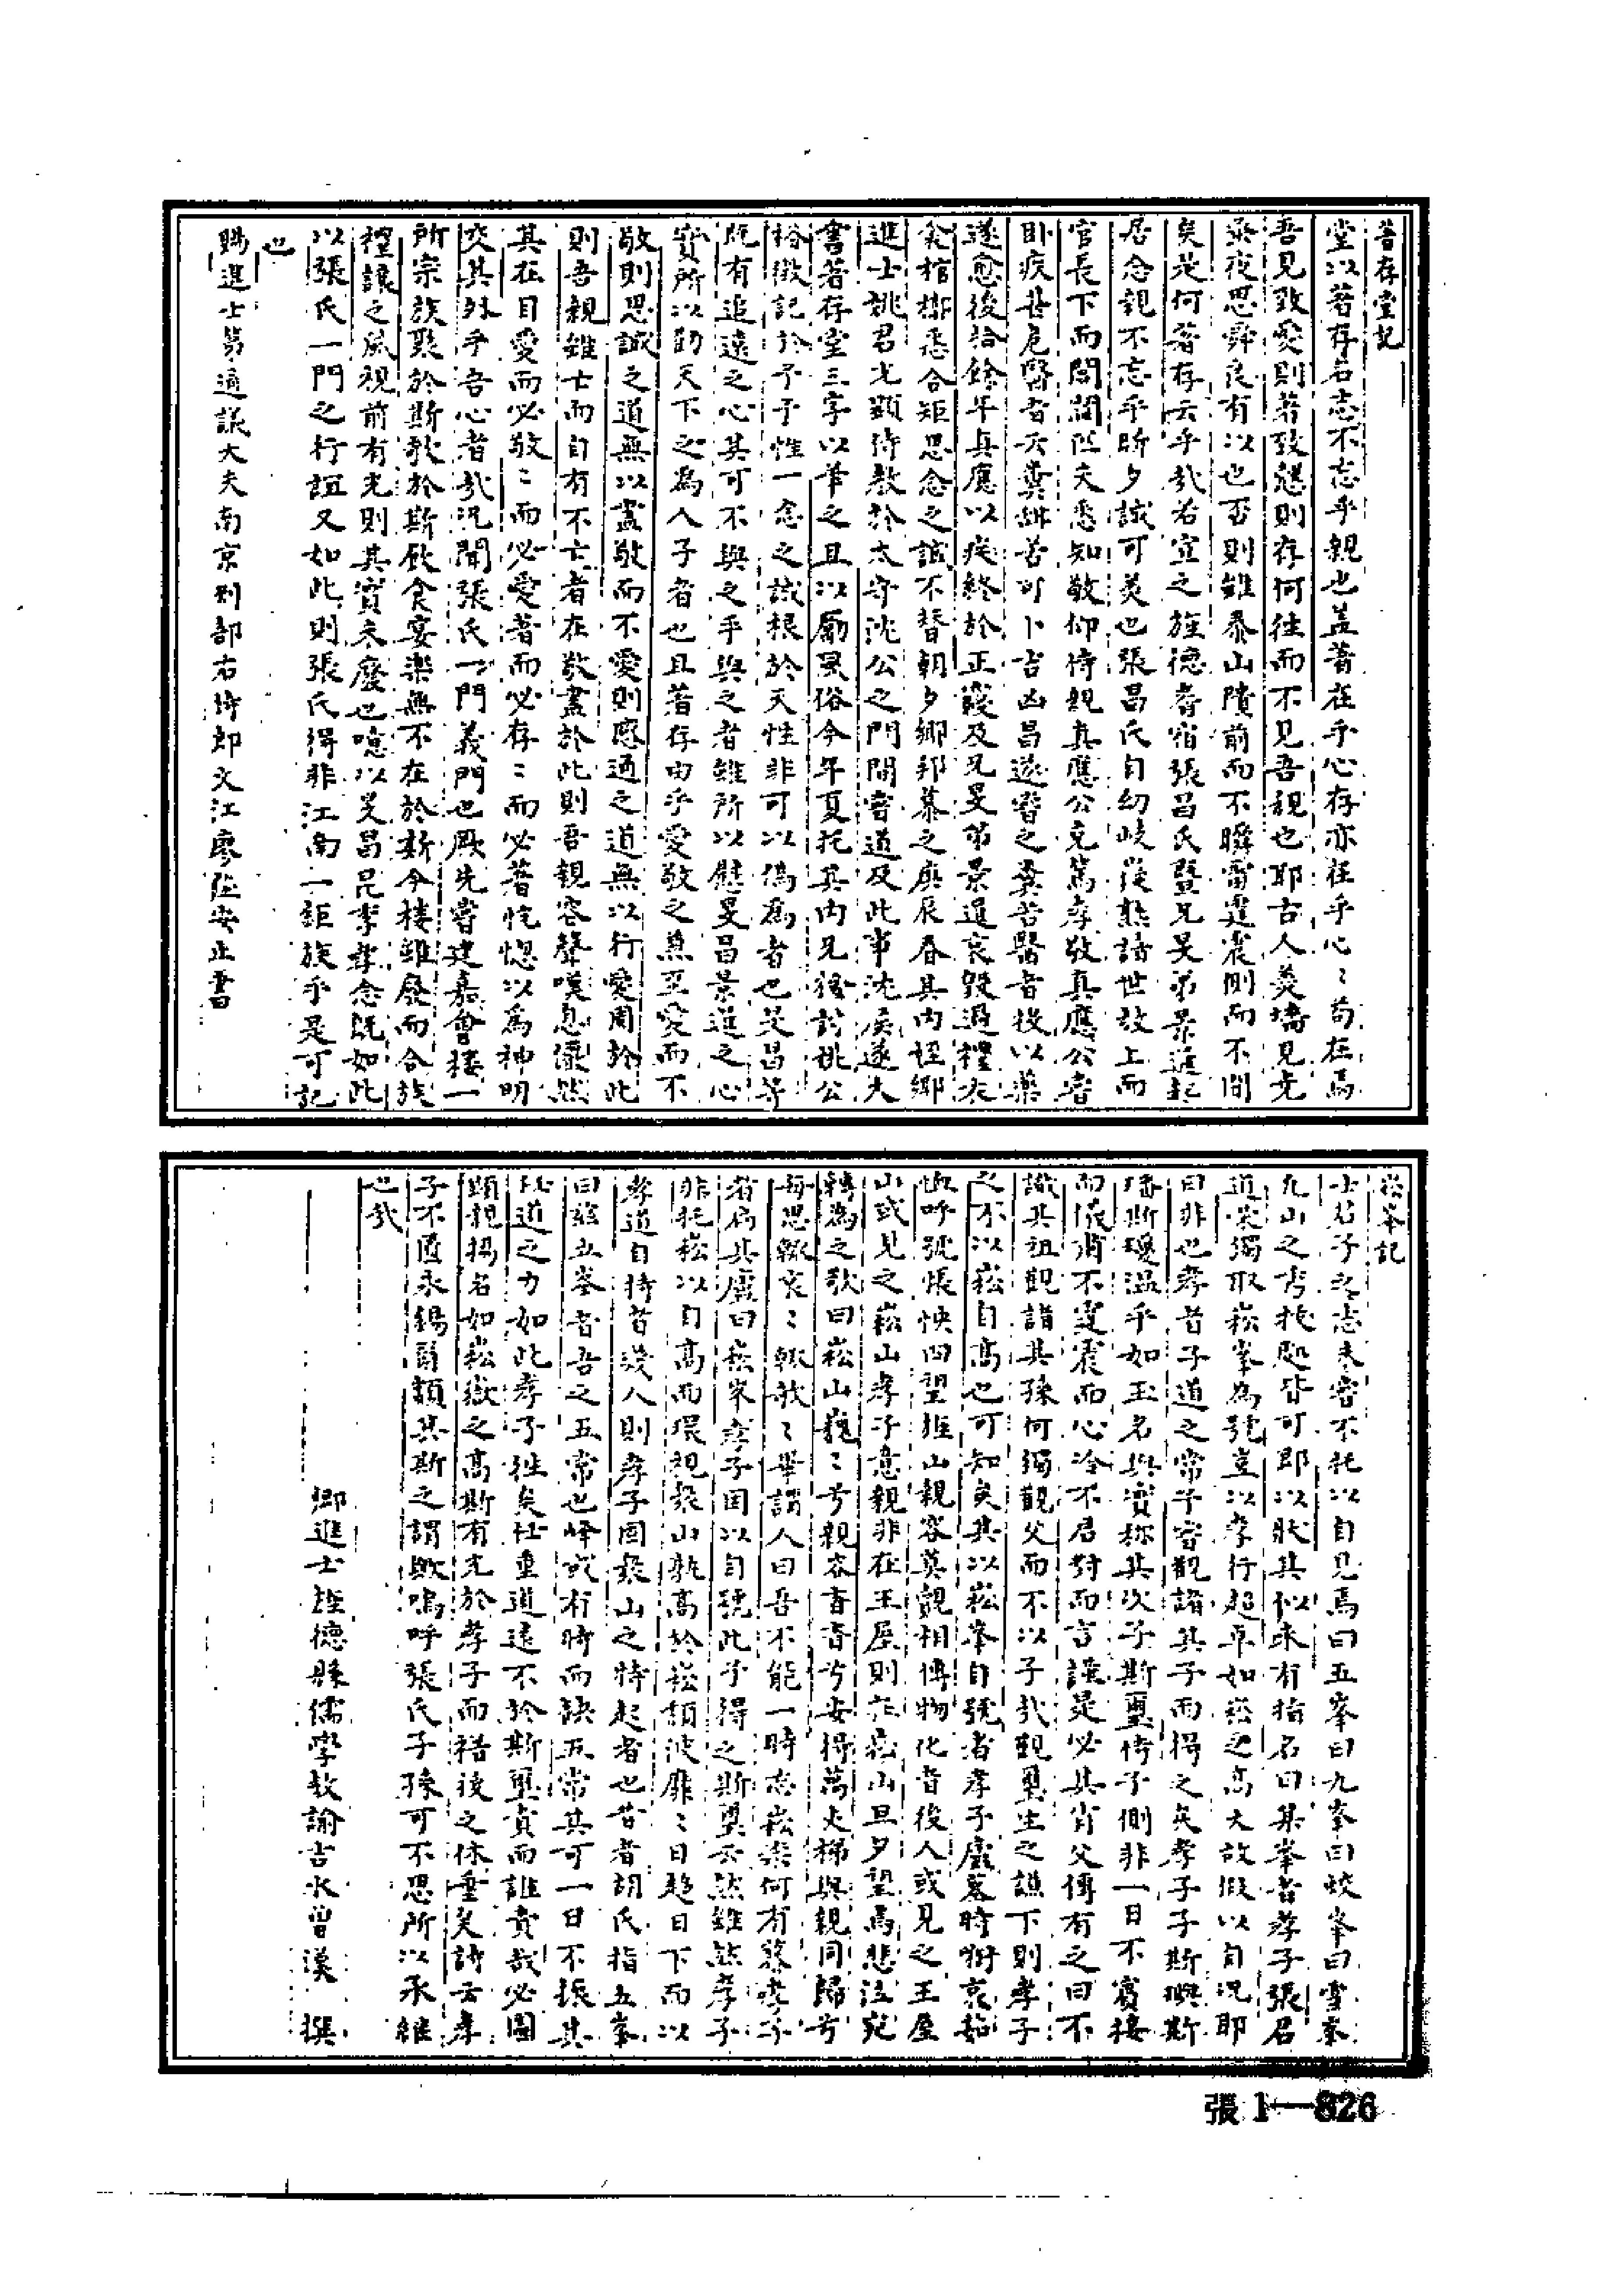 著存堂記
堂以著存名志不忘乎親也盖著在乎心存亦在乎心〻苟在焉
吾見致愛則著致慤則存何往而不見吾親也耶古人羮墻見尭
夙夜思舜良有以也否則雖泰山隤前而不瞬雷霆震側而不聞
矣是何著存云乎哉若宣之旌德耆宿張昌氏曁兄旻弟景道起
居念親不忘乎昕夕誠可羙也張昌氏自幼岐嶷熟諳世故上而
官長下而閭閻匹夫悉知敬仰侍親真應公克篤孝敬真應公嘗
卧疾甚危醫者云糞甜苦可卜吉凶昌遂嘗之糞苦醫者投以藥
遂愈後拾餘年真應以疾終於正寢及兄旻弟景道哀毀過禮衣
衾棺槨悉合矩思念之誠不替朝夕鄉邦慕之庚辰春其内姪鄉
進士姚君光顕侍教於太守沈公之門間嘗道及此事沈侯遂大
書著存堂三字以華之且以勵風俗今年夏托其内兄 姚公
裕徵記於予予惟一念之誠根於天性非可以偽爲者也旻昌等
既有追遠之心其可不與之乎與之者雖所以慰旻昌景道之心
實所以勸天下之為人子者也且著存由乎愛敬之兼至愛而不
敬則思誠之道無以盡敬而不愛則感通之道無以行愛周於此
則吾親雖亡而自有不亡者在敬盡於此則吾親容聲嘆息儼然
其在目愛而必敬〻而必愛著而必存〻而必著恍惚以爲神明
交其外乎吾心者哉況聞張氏一門義門也厥先嘗建嘉會樓一
所宗族聚於斯教於斯飲食宴樂無不在於斯今樓雖廢而合族
禮讓之風視前有光則其實未廢也噫以旻昌昆季孝念既如此
以張氏一門之行誼又如此則張氏得非江南一鉅族乎是可記
也
賜進士第通議大夫南京刑部右侍郎文江廖莊安止書
崧峯記
士君子之志未嘗不托以自見焉曰五峯曰九峯曰蛟峯曰雪峯
九山之秀 皆可即以狀其似未有指名曰某峯者孝子張君
道榮獨取崧峯為號豈以孝行超卓如崧之高大故假以自况耶
曰非也孝者子道之常予嘗觀諸其子而得之矣孝子子斯璵斯
璠斯瓊温乎如玉名與實称其次子斯璽侍予側非一日不賓接
而儀肅不霆震而心冷不君對而言謹是必其肖父傳有之曰不
識其祖覩諸其孫何獨觀父而不以子哉觀璽生之謙下則孝子
之不以崧自高也可知矣其以崧峯自號者孝子廬墓時 哀
血呼號悵怏四望惟山親容莫覩相傳物化者後人或見之王屋
山或見之崧山孝子意親非在王屋則在崧山旦夕望焉悲泣宛
轉為之歌曰崧山巍〻兮親容杳杳兮安得萬丈梯與親同歸兮
每思輒哀〻輒歌〻畢謂人曰吾不能一時忘崧 何有 孝子
者扁其廬曰崧峯孝子因以自號此予得之斯璽云然雖然孝子
非托崧以自高而環視衆山孰高於崧頹波靡〻日趍日下而以
孝道自持者幾人則孝子固衆山之特起者也昔者胡氏指五峯
曰兹五峯者吾之五常也峰或有時而缺五常其可一日不振其
任道之力如此孝子徃矣任重道遠不於斯璽責而誰責哉必圖
顕親揚名如崧嶽之高斯有光於孝子而裕後之休垂矣詩云孝
子不匱永錫爾類其斯之謂歟嗚呼張氏子孫可不思所以承繼
也哉
鄉進士旌德縣儒學教諭吉水曾漢撰
張1—826